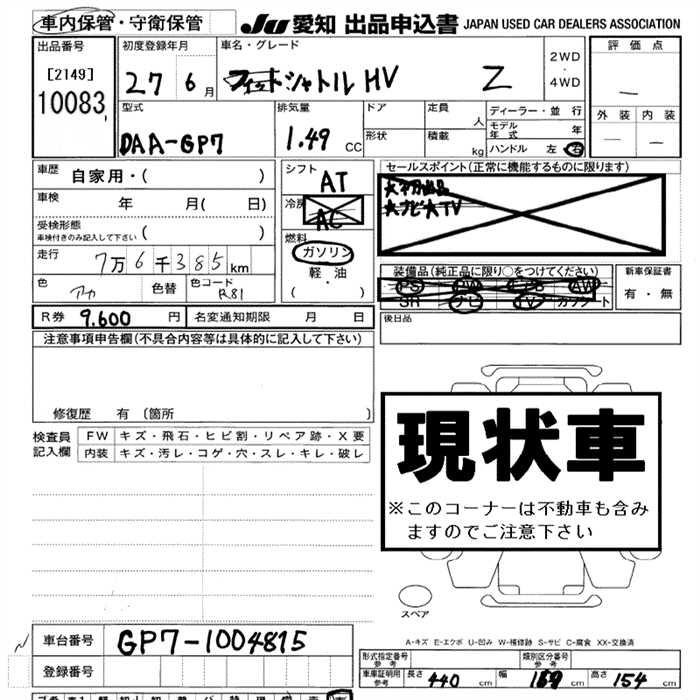 車内保管・守衛保管 JU 愛知 出品申込書 JAPAN USED CAR DEALERS ASSOCIATION
出品番号 初度登録年月 車名・グレード 評価点
[2149] 27 6月 フィットシャトルHV Z 2WD・4WD —
10083
外装 内装
型式 排気量 ドア 定員 人 ディーラー・並行
モデル年式 年
DAA-GP7 1.49 CC 形状 積載 kg ハンドル 左 右 — —
車歴 自家用・( )
シフト AT
セールスポイント(正常に機能するものに限ります)
車検 年 月( 日)
冷房 AC
★ナビ★TV
受検形態 車検付きのみ記入して下さい ( )
燃料 ガソリン
軽・油
( )
走行 7万6千385km
装備品(純正品に限り○をつけてください) 新車保証書
PS PW AW 有・無
SR ナビ TV カセット
色 アカ 色替 色コード R81
R券 9.600円 名変通知期限 月 日
後日品
注意事項申告欄(不具合内容等は具体的に記入して下さい)
修復歴 有 〔箇所 〕
現状車
※このコーナーは不動車も含みますのでご注意下さい
検査員記入欄 FW キズ・飛石・ヒビ割・リペア跡・X要
内装 キズ・汚レ・コゲ・穴・スレ・キレ・破レ
スペア
A-キズ E-エクボ U-凹み W-補修跡 S-サビ C-腐食 XX-交換済
車台番号 GP7-1004815
登録番号
形式指定番号 参考 類別区分番号 参考
車庫証明用 参考 長さ 440cm 幅 169cm 高さ 154cm